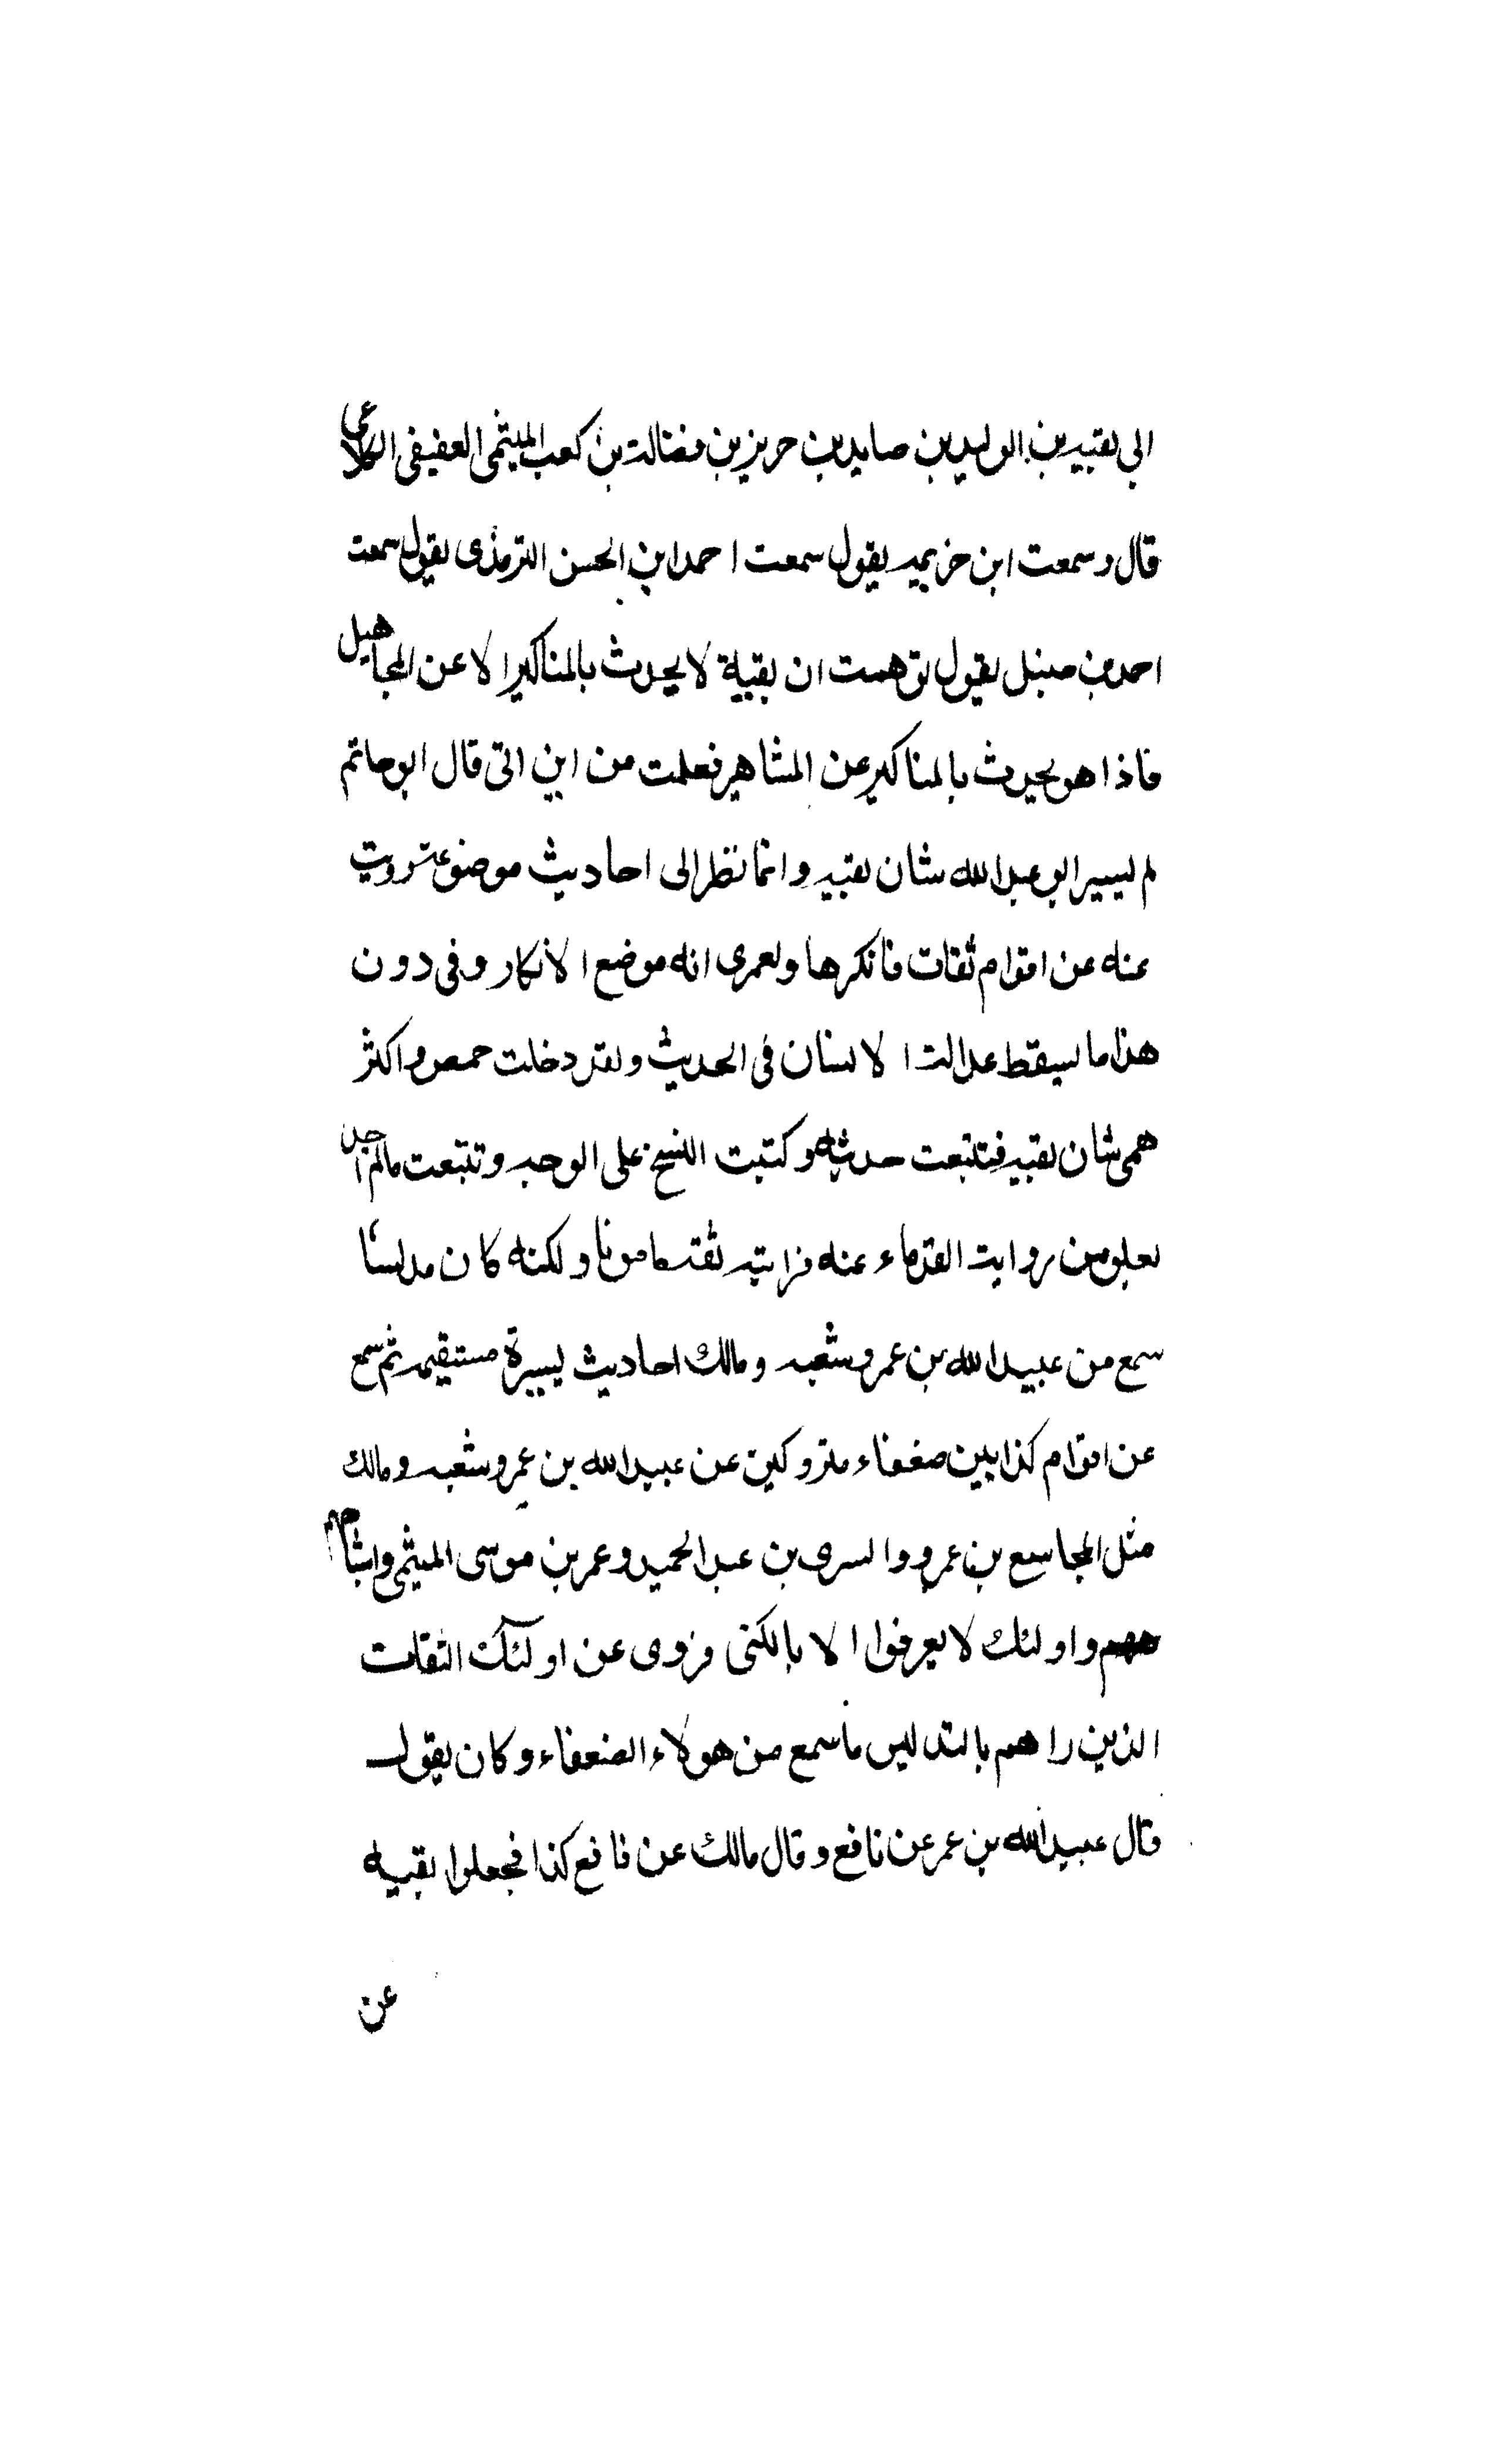 الى بقيه بن الوليد بن صايد بن حريز بن فضالة بن كعب الميثمى العفيفى الكلاعى
قال وسمعت ابن خزيمه يقول سمعت احمد ابن الحسن الترمذى يقول سمعت
احمد بن حنبل يقول توهمت ان بقية لا يحدث بالمناكير الا عن المجاهيل
فاذا هو يحدث بالمناكير عن المشاهير فعلمت من اين اتى قال ابو حاتم
لم يسير ابو عبد الله شان بقيه وانما نظر الى احاديث موضوعة رويت
عنه عن اقوام ثقات فانكرها ولعمرى انه موضع الانكار وفى دون
هذا ما يسقط عدالة الانسان فى الحديث ولقد دخلت حمص واكثر
همى شان بقيه فتتبعت حديثه وكتبت النسخ على الوجه وتتبعت مالم اجد
بعلو من روايت القدماء عنه فرايته ثقه مامونا ولكنه كان مدلسا
سمع من عبيد الله بن عمر وشعبه ومالك احاديث يسيرة مستقيمه ثم سمع
عن اقوام كذابين ضعفاء متروكين عن عبيد الله بن عمر وشعبه ومالك
مثل المجاسع بن عمرو والسرى بن عبد الحميد وعمر بن موسى الميثمى واشباههم
واولئك لا يعرفوا الا بالكنى فروى عن اولئك الثقات
الذين راهم بالتدليس ما سمع من هولاء الضعفاء وكان يقول
قال عبيد الله بن عمر عن نافع وقال مالك عن نافع كذا فجعلوا بقيه
عن